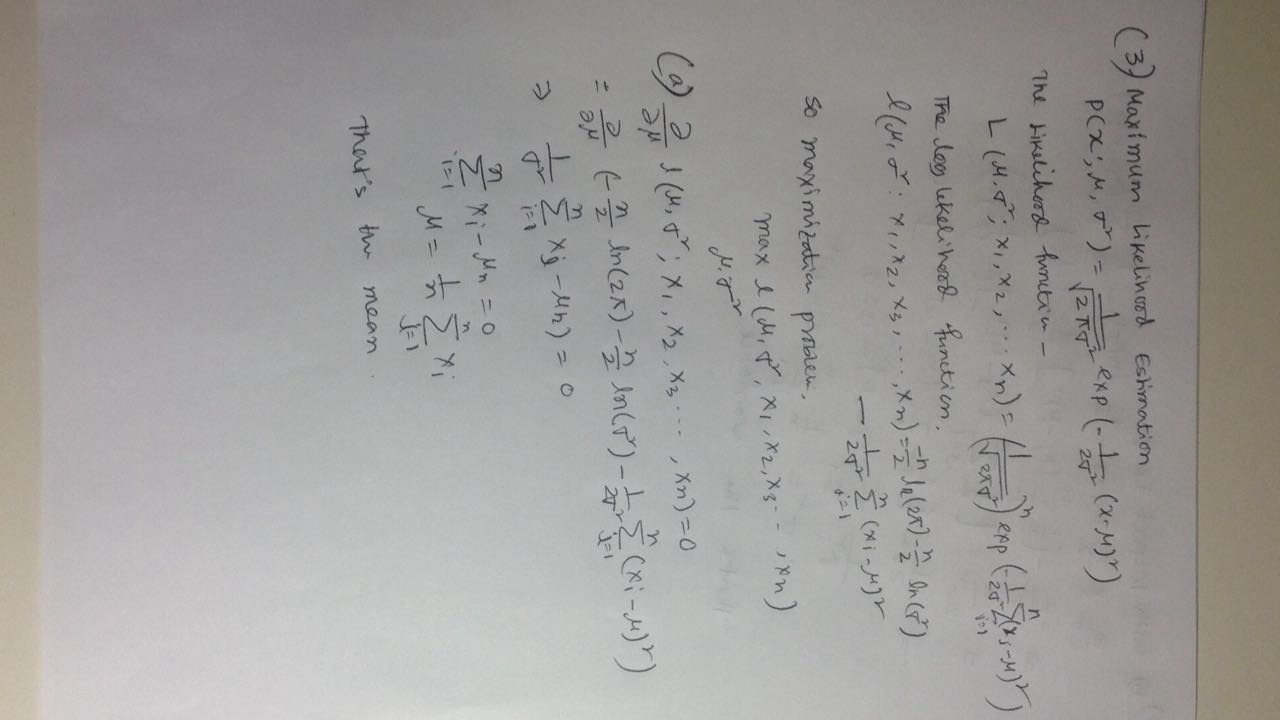 (3) Maximum Likelihood Estimation
P(x; μ, σ²) = 1/√(2πσ²) exp (-1/2σ² (x-μ)²)
The Likelihood function -
L (μ, σ²; x₁, x₂, ... xₙ) = (1/√(2πσ²))ⁿ exp (-1/2σ² Σᵢ₌₁ⁿ (xⱼ-μ)²)
The log likelihood function,
l(μ, σ²: x₁, x₂, x₃, ..., xₙ) = -n/2 ln(2π) - n/2 ln(σ²)
- 1/2σ² Σⱼ₌₁ⁿ (xᵢ-μ)²
So maximization problem,
max l (μ, σ², x₁, x₂, x₃ -- , xₙ)
μ, σ²
(a) ∂/∂μ l (μ, σ²; x₁, x₂, x₃ ..., xₙ) = 0
= ∂/∂μ (-n/2 ln(2π) - n/2 ln(σ²) - 1/2σ² Σⱼ₌₁ⁿ (xᵢ-μ)²)
⇒ 1/σ² Σᵢ₌₁ⁿ xⱼ - μn) = 0
Σᵢ₌₁ⁿ xᵢ - μn = 0
μ = 1/n Σⱼ₌₁ⁿ xᵢ
That's the mean.